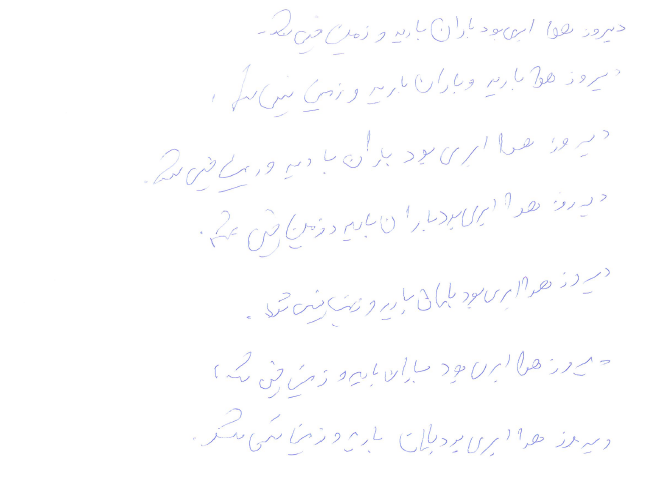 دیروز هوا ابری بود باران بارید و زمین خیس شد.
دیروز هوا بارید و باران بارید و زمین خیس شد.
دیروز هوا ابری بود باران بارید و زمین خیس شد.
دیروز هوا ابری بود باران بارید و زمین خیس شد.
دیروز هوا ابری بود باران بارید و زمین خیس شد.
دیروز هوا ابری بود باران بارید و زمین خیس شد.
دیروز هوا ابری بود باران بارید و زمین خیس شد.